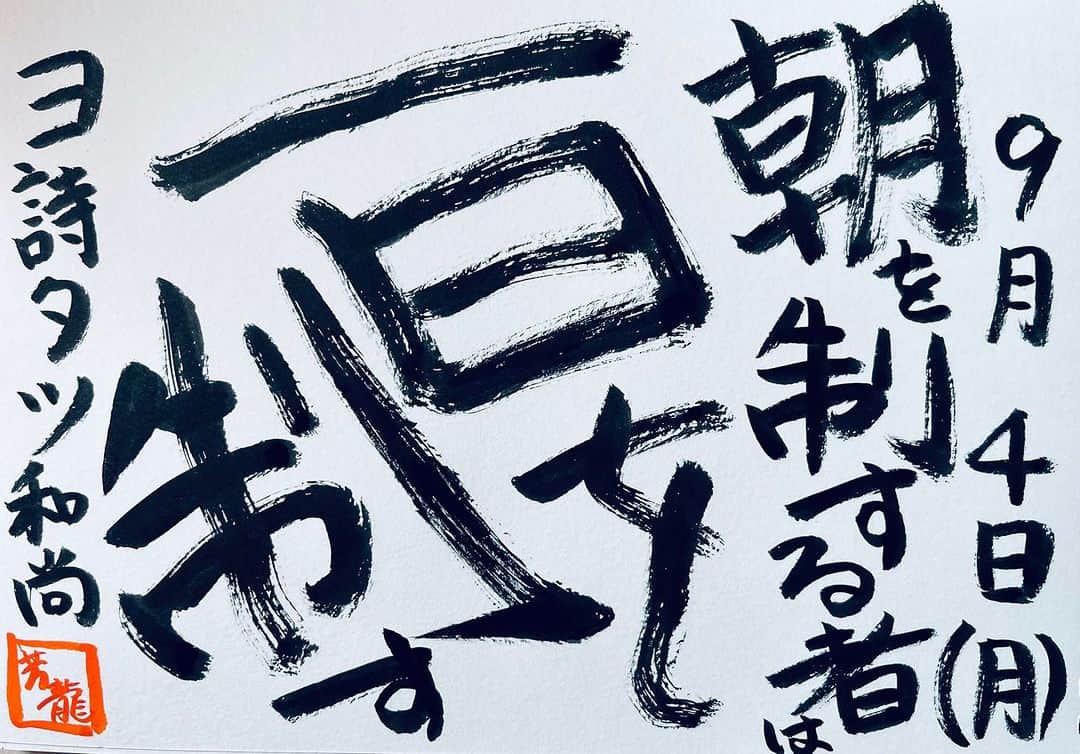 9月4日(月)
朝を制する者は
一日を
制す
ヨ詩タツ和尚
芳龍